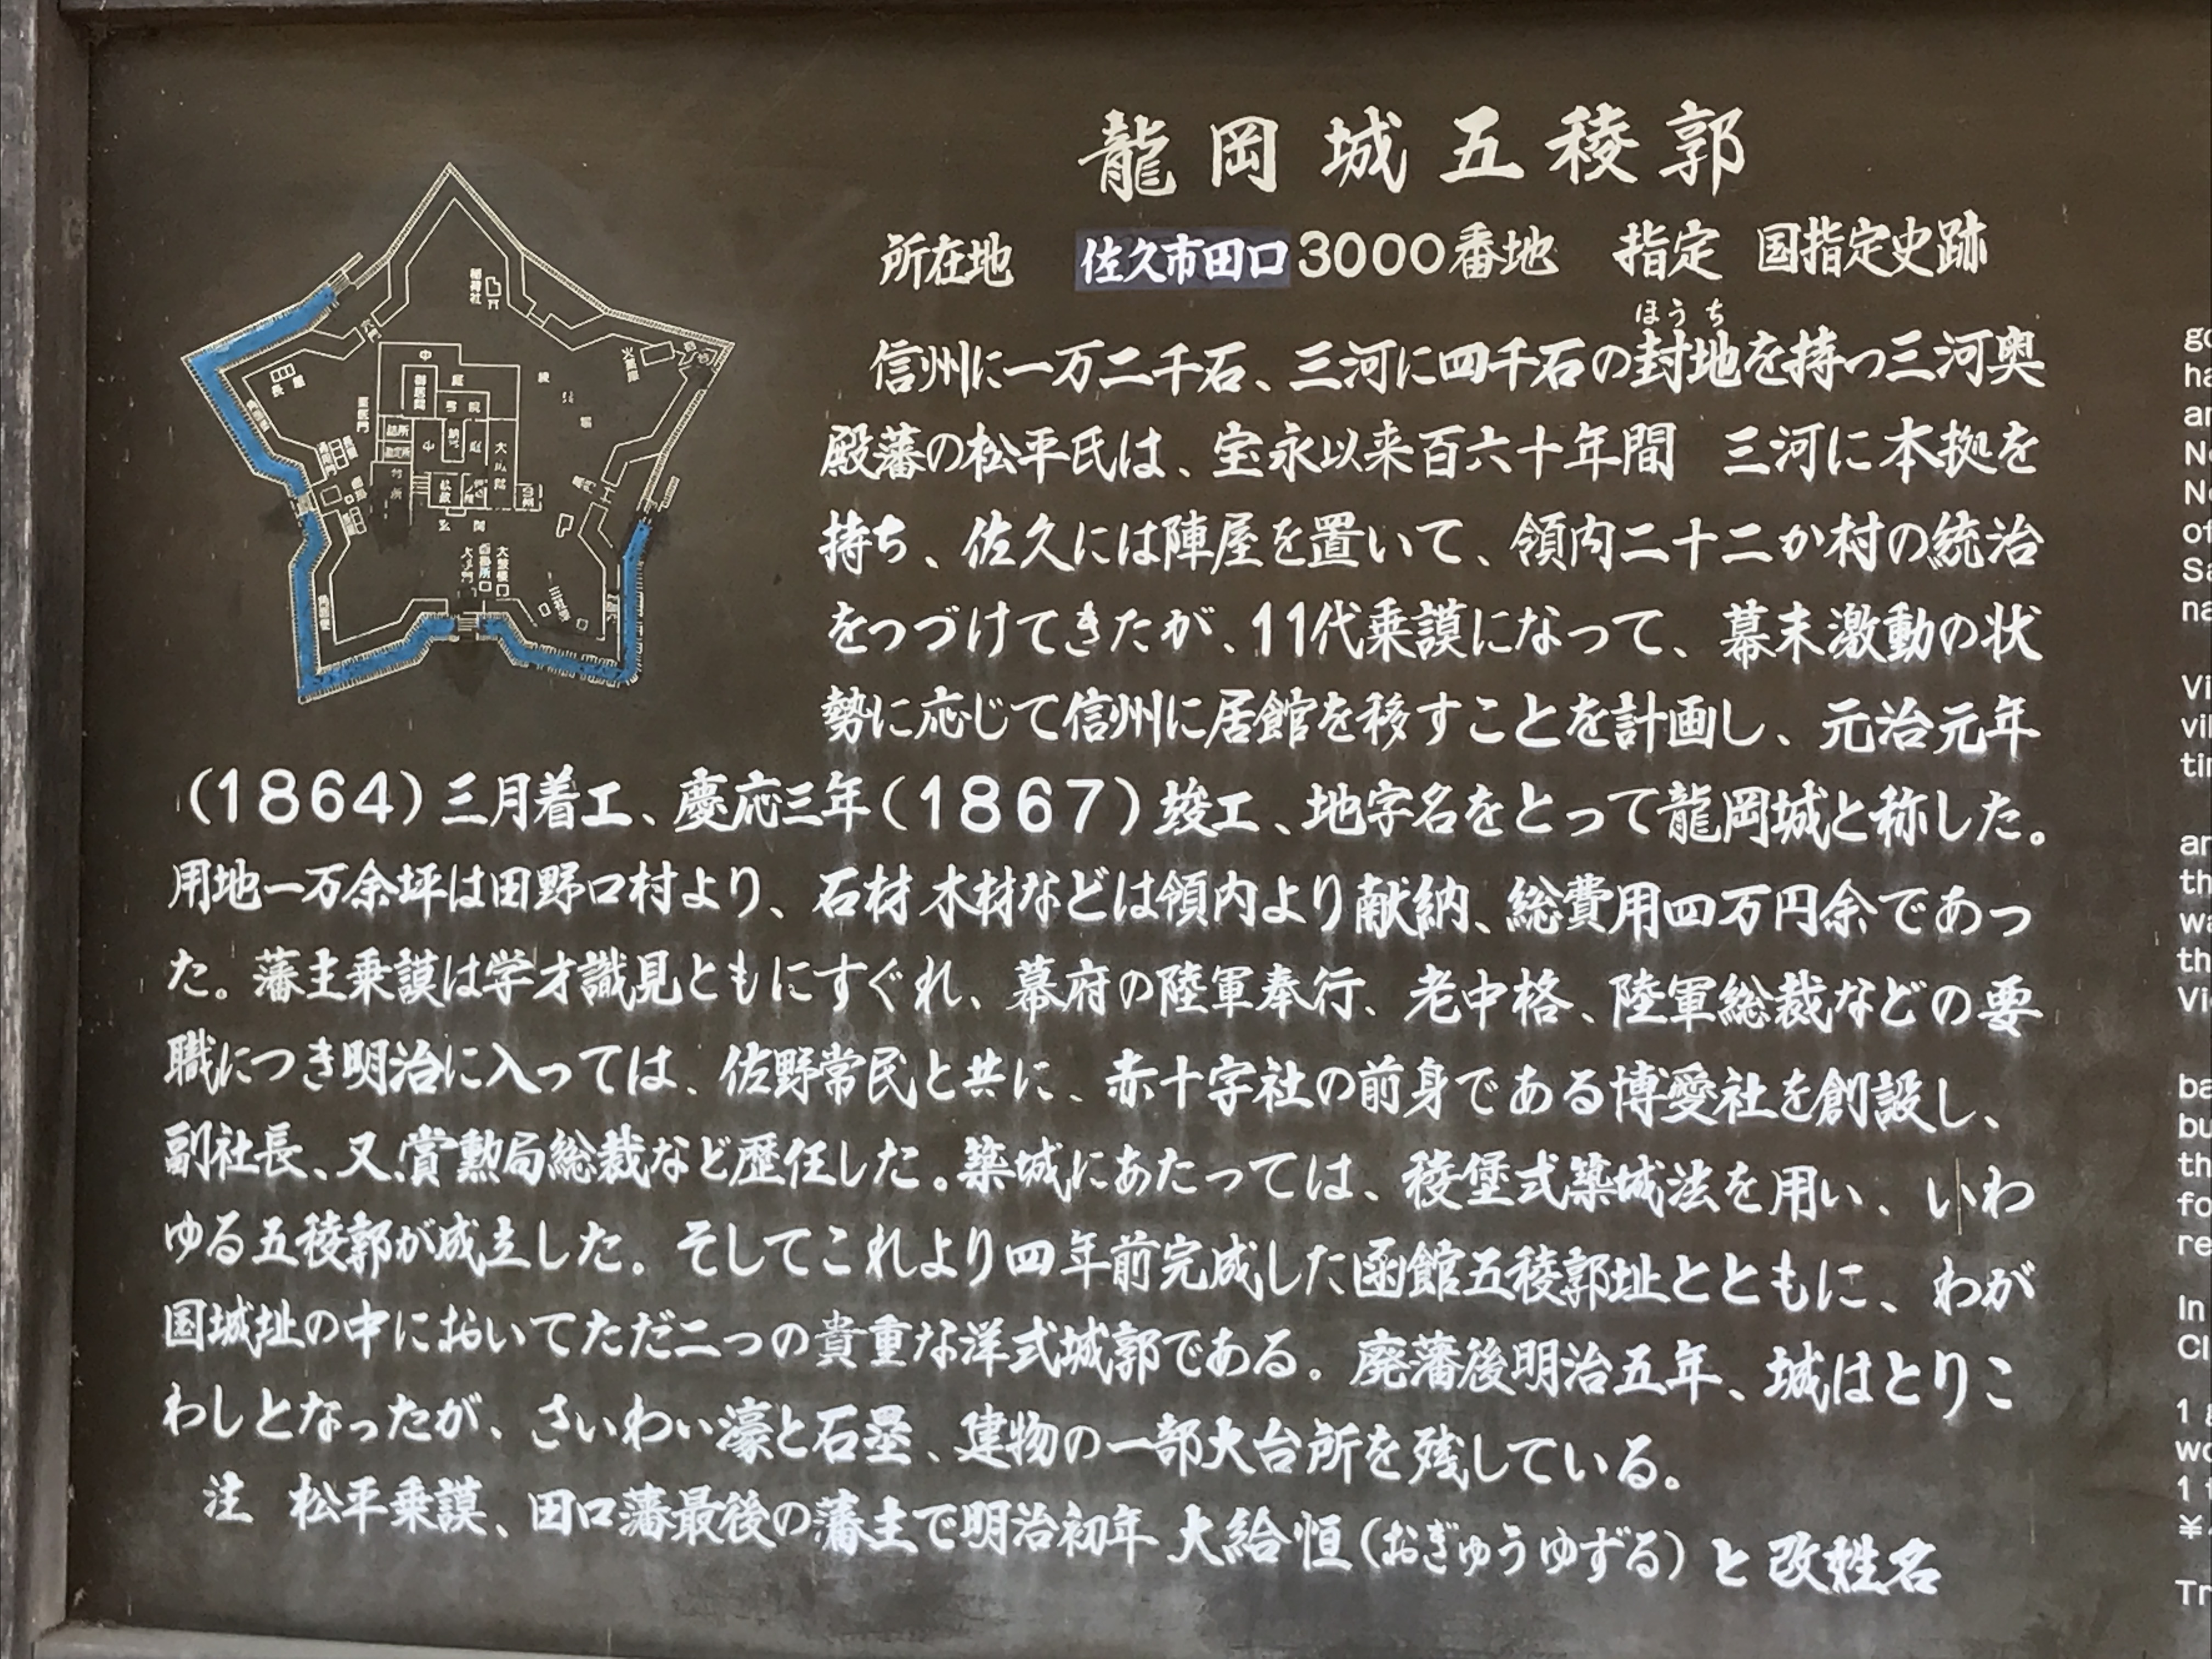 龍岡城五稜郭
所在地 佐久市田口3000番地 指定 国指定史跡
ほうち
信州に一万二千石、三河に四千石の封地を持つ三河奥
殿藩の松平氏は、宝永以来百六十年間 三河に本拠を
持ち、佐久には陣屋を置いて、領内二十二か村の統治
をつづけてきたが、11代乗謨になって、幕末激動の状
勢に応じて信州に居館を移すことを計画し、元治元年
(1864)三月着工、慶応三年(1867)竣工、地字名をとって龍岡城と称した。
用地一万余坪は田野口村より、石材木材などは領内より献納、総費用四万円余であっ
た。藩主乗謨は学才識見ともにすぐれ、幕府の陸軍奉行、老中格、陸軍総裁などの要
職につき明治に入っては、佐野常民と共に、赤十字社の前身である博愛社を創設し、
副社長、又賞勲局総裁など歴任した。築城にあたっては、稜堡式築城法を用い、いわ
ゆる五稜郭が成立した。そしてこれより四年前完成した函館五稜郭址とともに、わが
国城址の中においてただ二つの貴重な洋式城郭である。廃藩後明治五年、城はとりこ
わしとなったが、さいわい濠と石塁、建物の一部大台所を残している。
注 松平乗謨、田口藩最後の藩主で明治初年 大給恒(おぎゅうゆずる)と改姓名